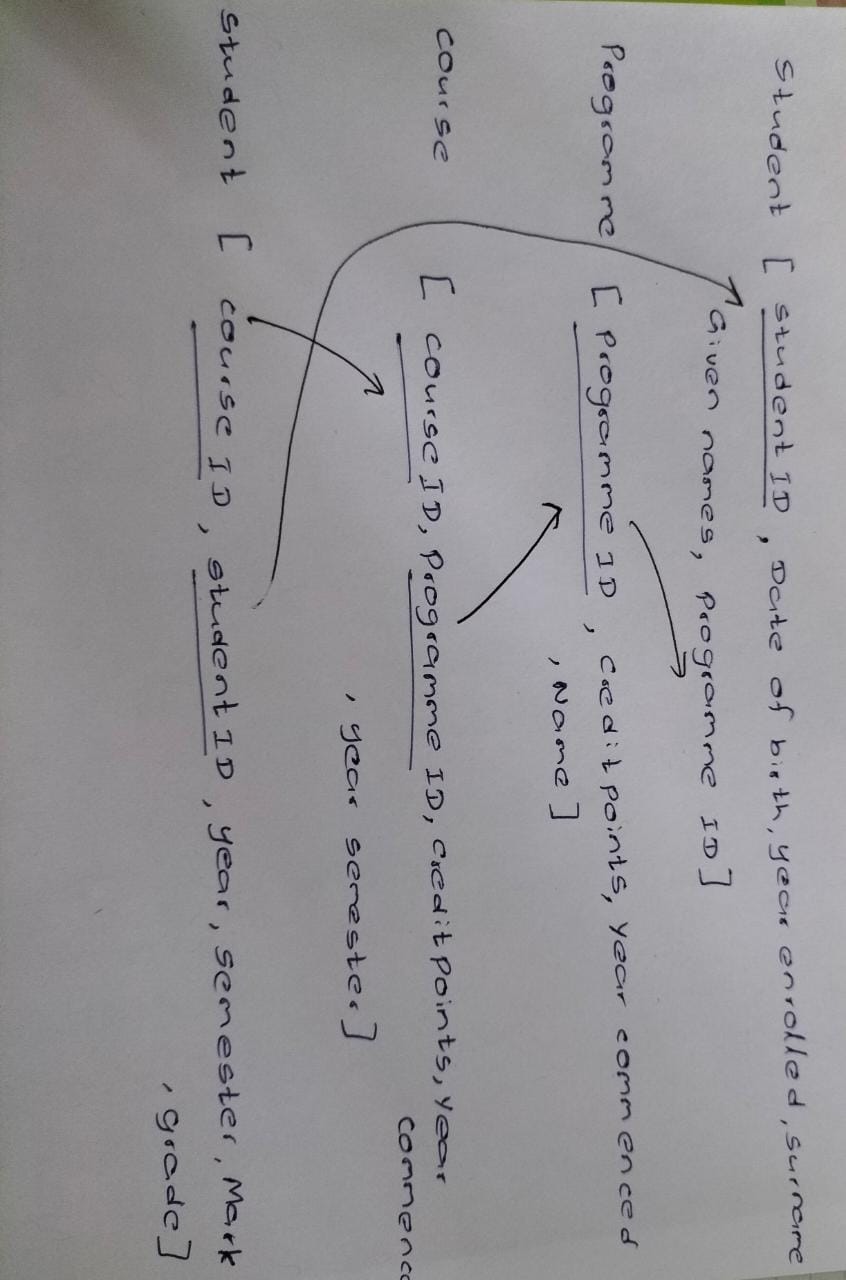 Student [ Student ID, Date of birth, year enrolled, surname
Given names, Programme ID]
Programme [ Programme ID, credit points, year commenced
, Name]
course [ course ID, Programme ID, credit points, year
commence
, year semester]
student [ course ID, student ID, year, semester, Mark
, grade]